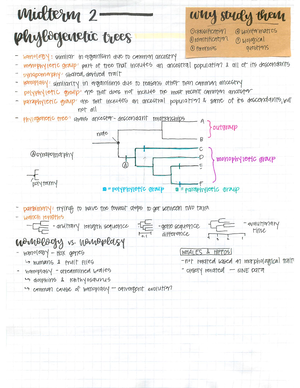 midterm 2
phylogenetic trees
why study them
① classification
② identification
③ timelines
④ bioinformatics
⑤ biological questions
- homology: similar in organisms due to common ancestry
- monophyletic group: part of tree that includes an ancestral population & all of its descendants
- synapomorphy: shared, derived trait
- homoplasy: similarity in organisms due to reasons other than common ancestry
- polyphyletic group: one that does not include the most recent common ancestor
- paraphyletic group: one that includes an ancestral population & some of its descendants, but not all
- phylogenetic tree: shows ancestor-descendant relationships
node
A
B
outgroup
C
D
E
F
monophyletic group
synapomorphy
polytomy
= polyphyletic group
= paraphyletic group
- parsimony: trying to have the fewest steps to get between two taxa
- branch lengths
- arbitrary length sequence
- gene sequence difference
- evolutionary time
homology vs homoplasy
- homology - hox genes
↳ humans & fruit flies
- homoplasy - streamlined bodies
↳ dolphins & ichthyosaurus
- common cause of homoplasy - convergent evolution
whales & hippos
- not related based on morphological trait
- closely related - SINE data